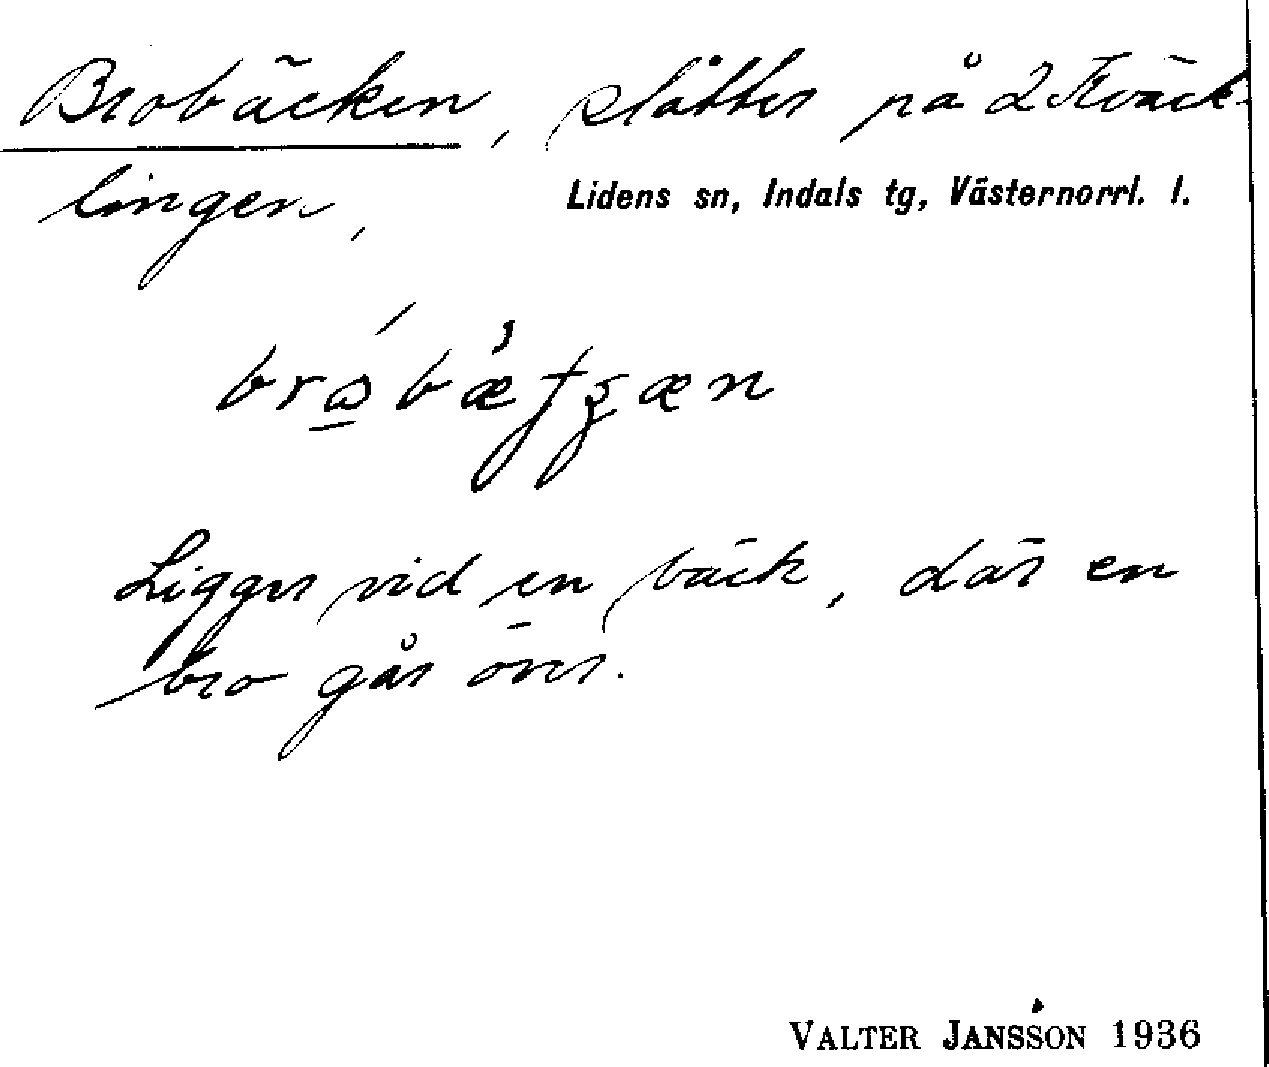 Brobäcken, slåtter på 2 Kväck-
lingen, Lidens sn, Indals tg, Västernorrl. l.
Ligger vid en bäck, där en
bro går över.
VALTER JANSSON 1936